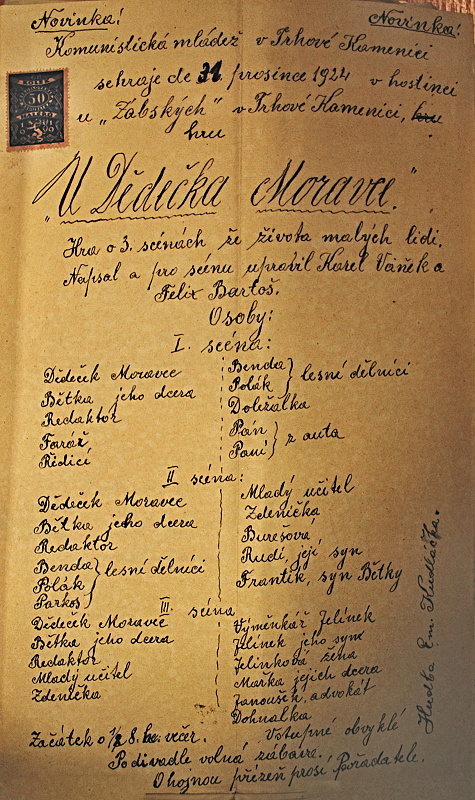 Novinka! Novinka!
Komunistická mládež v Trhové Kamenici
sehraje dne 31. prosince 1924 v hostinci
u „Zabských" v Trhové Kamenici, hru
hru
50
„U Dědečka Moravce."
Hra o 3. scénách ze života malých lidí.
Napsal a pro scénu upravil Karel Vaněk a
Felix Bartoš.
Osoby:
I. scéna:
Dědeček Moravec
Bětka jeho dcera
Redaktor
Farář
Řídící
Benda
Polák
lesní dělníci
Doležalka
Pán
Paní
z auta
II scéna:
Dědeček Moravec
Bětka jeho dcera
Redaktor
Benda
Polák
Parkos
lesní dělníci
Mladý učitel
Zdenička
Burešová
Rudi, její syn
Frantík, syn Bětky
III. scéna
Dědeček Moravec
Bětka jeho dcera
Redaktor
Mladý učitel
Zdenička
Výměnkář Jelínek
Jelínek jeho syn
Jelínková žena
Mařka jejich dcera
Janoušek, advokát
Dohnalka
Hudba Em. Kudláčka.
Začátek o ½ 8. ho. večer. Vstupné obvyklé
Po divadle volná zábava.
O hojnou přízeň prosí Pořadatelé.